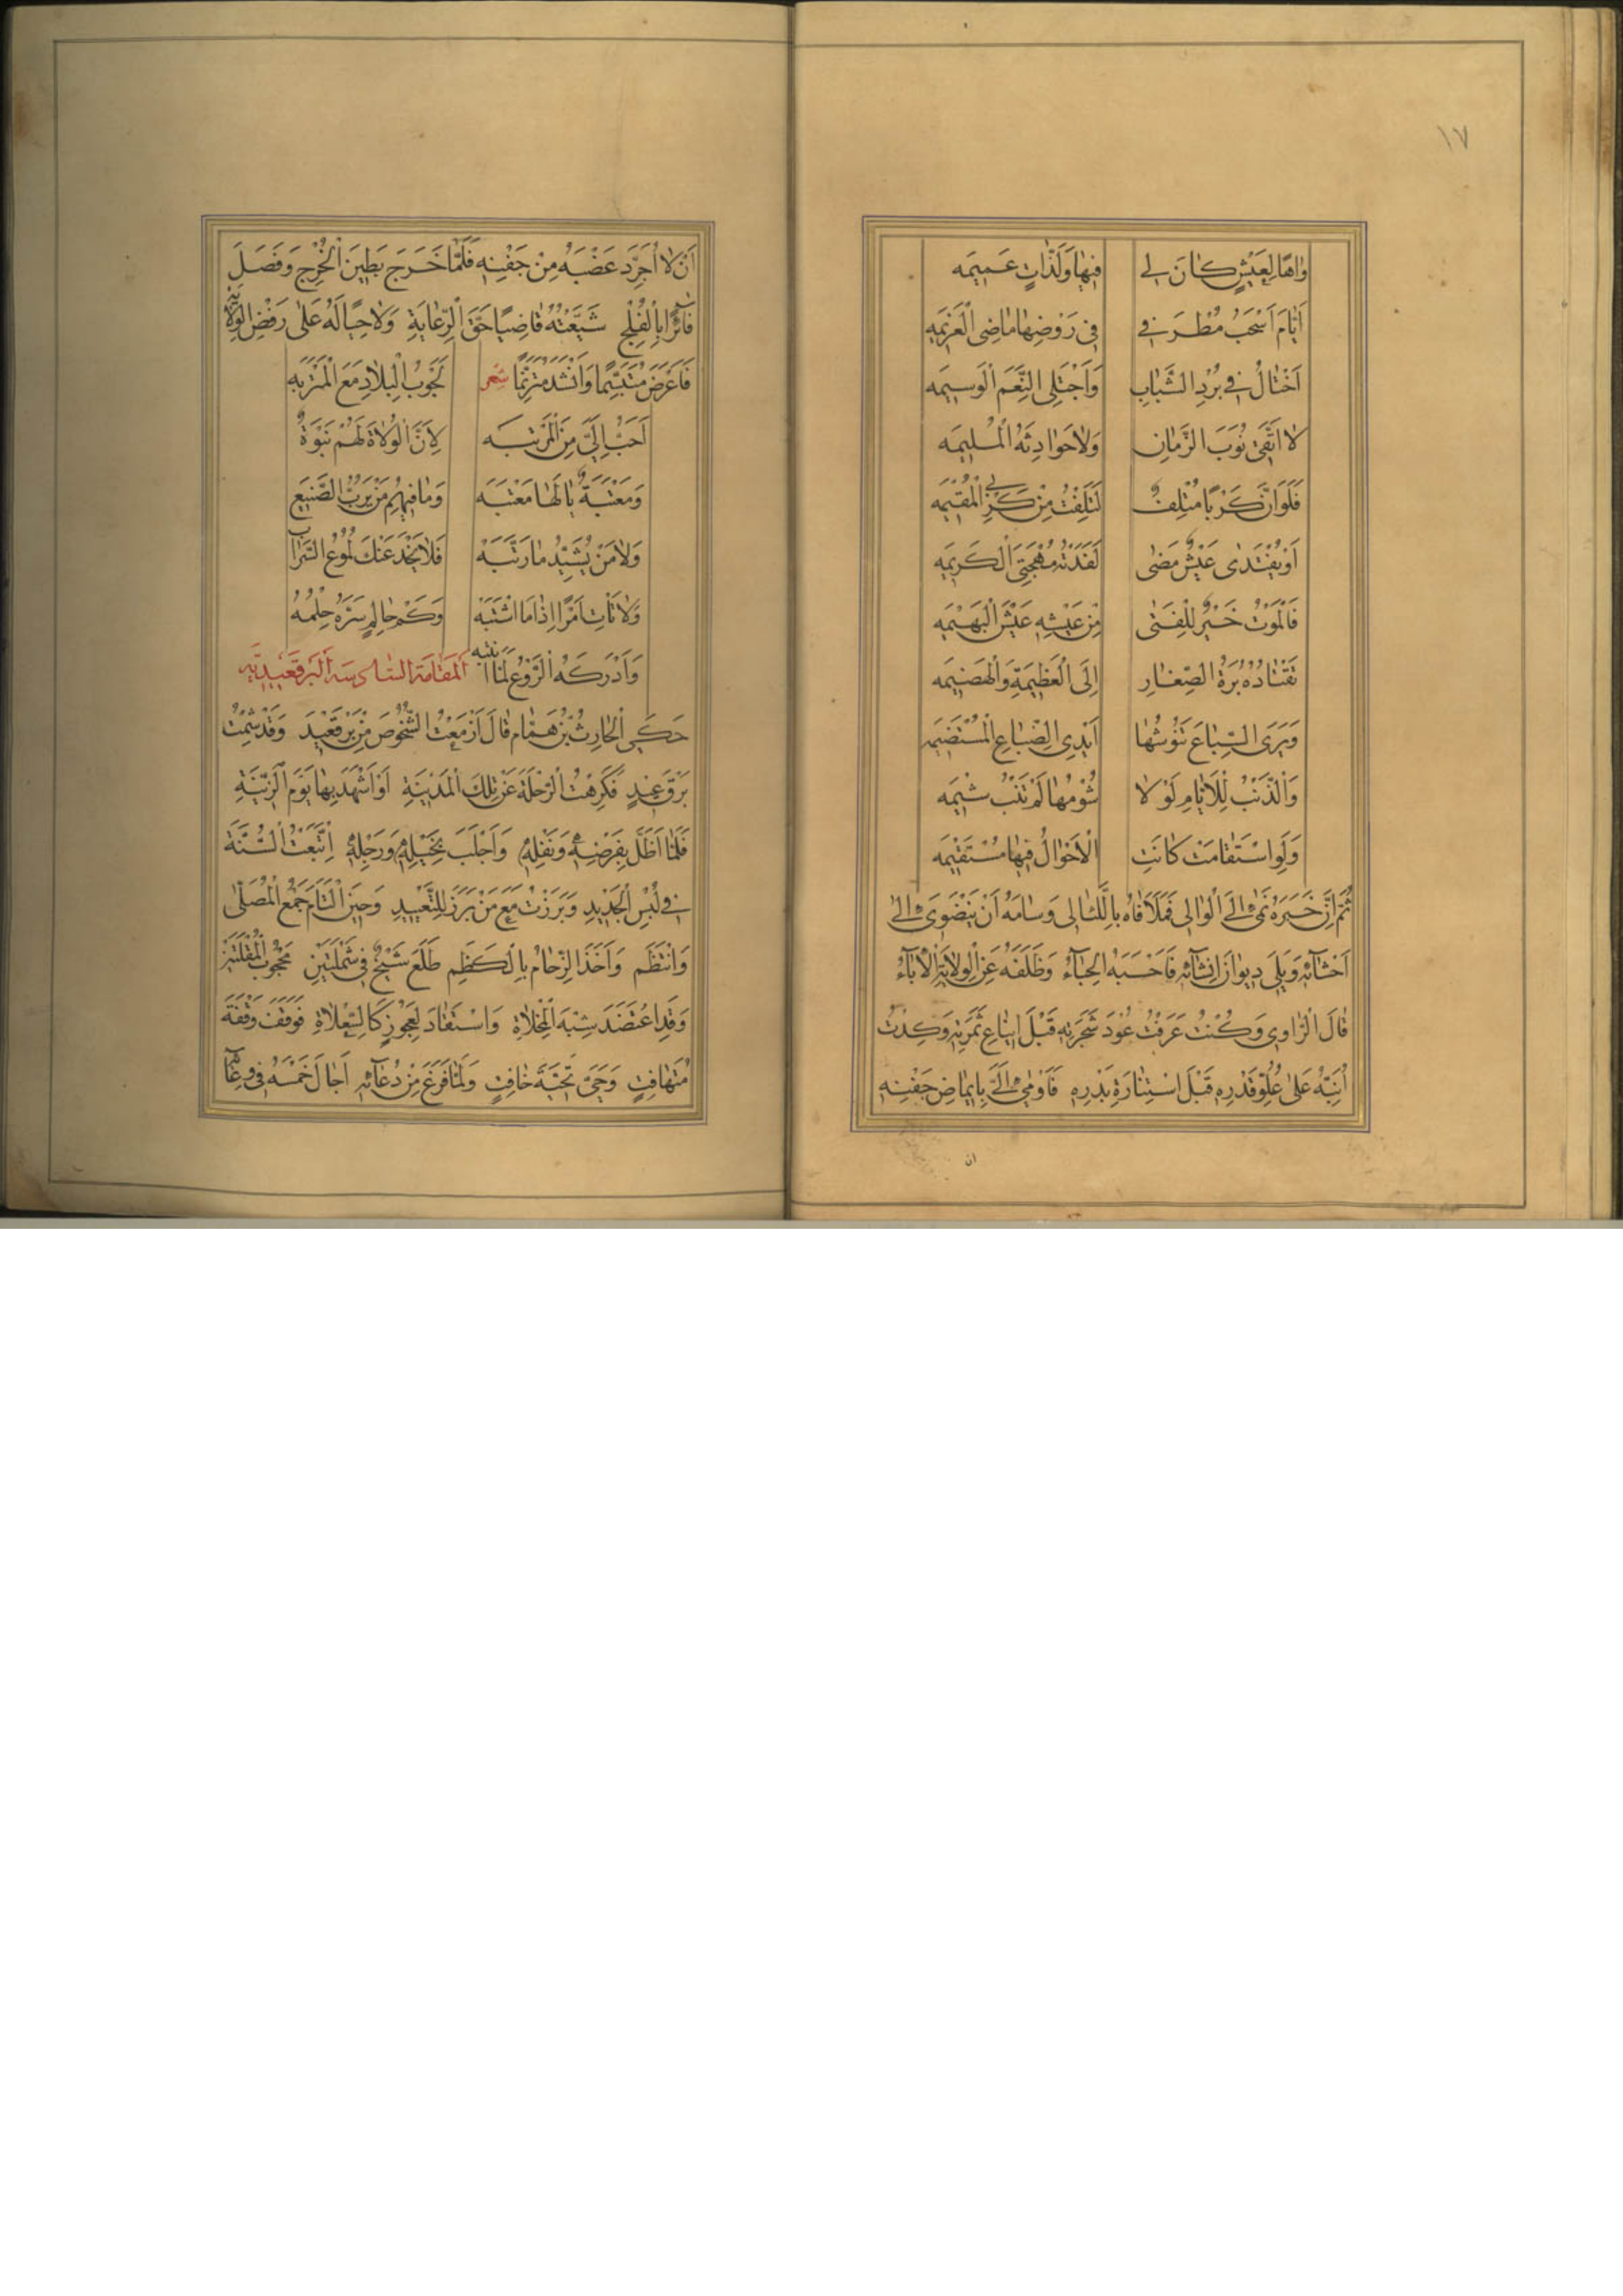 ١٧
وَاهًا لِعَيْشٍ كَانَ لِي فِيهَا وَلَذَّاتٍ عَمِيمَه
أَيَّامَ أَسْحَبُ مُطْرَفِي فِي رَوْضِهَا مَاضِي الْعَزِيمَه
أَخْتَالُ فِي بُرْدِ الشَّبَابِ وَأَجْتَلِي النِّعَمَ الْوَسِيمَه
لَا أَتَّقِي نُوَبَ الزَّمَانِ وَلَا حَوَادِثَهُ الْمُلِيمَه
فَلَوْ أَنَّ كَرْبًا مُتْلِفٌ لَتَلِفْتُ مِنْ كُرَبِي الْمُقِيمَه
أَوْ يُفْتَدَى عَيْشٌ مَضَى لَفَدَتْهُ مُهْجَتِيَ الْكَرِيمَه
فَالْمَوْتُ خَيْرٌ لِلْفَتَى مِنْ عَيْشِهِ عَيْشَ الْبَهِيمَه
تَقْتَادُهُ بُرَةُ الصَّغَارِ إِلَى الْعَظِيمَةِ وَالْهَضِيمَه
وَيَرَى السِّبَاعَ تَنُوشُهَا أَيْدِي الضِّبَاعِ الْمُسْتَضِيمَه
وَالذَّنْبُ لِلْأَيَّامِ لَوْلَا شُؤْمُهَا لَمْ تَنْبُ شِيمَه
وَلَوِ اسْتَقَامَتْ كَانَتِ الْأَحْوَالُ فِيهَا مُسْتَقِيمَه
ثُمَّ إِنَّ خَبَرَهُ نَمَى إِلَى الْوَالِي فَمَلَأَ فَاهُ بِاللَّئَالِي وَسَامَهُ أَنْ يَنْضَوِيَ إِلَى
أَحْشَآئِهِ وَيَلِيَ دِيوَانَ إِنْشَآئِهِ فَأَحْسَبَهُ الْحِبَآءُ وَظَلَفَهُ عَنِ الْوِلَايَةِ الْإِبَآءُ
قَالَ الرَّاوِي وَكُنْتُ عَرَفْتُ عُودَ شَجَرَتِهِ قَبْلَ إِينَاعِ ثَمَرَتِهِ وَكِدْتُ
أُنَبِّهُ عَلَى عُلُوِّ قَدْرِهِ قَبْلَ اسْتِنَارَةِ بَدْرِهِ فَأَوْمَى إِلَيَّ بِإِيمَاضِ جَفْنِهِ
ان
أَنْ لَا أُجَرِّدَ عَضْبَهُ مِنْ جَفْنِهِ فَلَمَّا خَرَجَ بَطِينَ الْخُرْجِ وَفَصَلَ
فَائِزًا بِالْفُلْجِ شَيَّعْتُهُ قَاضِيًا حَقَّ الرِّعَايَةِ وَلَاحِيًا لَهُ عَلَى رَفْضِ الْوِلَايَةِ
فَأَعْرَضَ مُتَبَسِّمًا وَأَنْشَدَ مُتَرَنِّمًا شعر لَجَوْبُ الْبِلَادِ مَعَ الْمَتْرَبَه
أَحَبُّ إِلَيَّ مِنَ الْمَرْتَبَه لِأَنَّ الْوُلَاةَ لَهُمْ نَبْوَةٌ
وَمَعْتَبَةٌ يَا لَهَا مَعْتَبَه وَمَا فِيهِمُ مَنْ يَرُبُّ الصَّنِيعَ
وَلَا مَنْ يُشَيِّدُ مَا رَتَّبَه فَلَا يَخْدَعَنْكَ لُمُوعُ السَّرَابِ
وَلَا تَأْتِ أَمْرًا إِذَا مَا اشْتَبَه وَكَمْ حَالِمٍ سَرَّهُ حِلْمُهُ
وَأَدْرَكَهُ الرَّوْعُ لَمَّا انْتَبَه المقامة السادسة البرقعيدية
حَكَى الْحَارِثُ بْنُ هَمَّامٍ قَالَ أَزْمَعْتُ الشُّخُوصَ مِنْ بَرْقَعِيدَ وَقَدْ شِمْتُ
بَرْقَ عِيدٍ فَكَرِهْتُ الرِّحْلَةَ عَنْ تِلْكَ الْمَدِينَةِ أَوْ أَشْهَدَ بِهَا يَوْمَ الزِّينَةِ
فَلَمَّا أَظَلَّ بِفَرْضِهِ وَنَفْلِهِ وَأَجْلَبَ بِخَيْلِهِ وَرَجْلِهِ اِتَّبَعْتُ السُّنَّةَ
فِي لُبْسِ الْجَدِيدِ وَبَرَزْتُ مَعَ مَنْ بَرَزَ لِلتَّعْيِيدِ وَحِينَ الْتَأَمَ جَمْعُ الْمُصَلَّى
وَانْتَظَمَ وَأَخَذَ الزِّحَامُ بِالْكَظَمِ طَلَعَ شَيْخٌ فِي شَمْلَتَيْنِ مَحْجُوبُ الْمُقْلَتَيْنِ
وَقَدِ اعْتَضَدَ شِبْهَ الْمِخْلَاةِ وَاسْتَقَادَ لِعَجُوزٍ كَالسِّعْلَاةِ فَوَقَفَ وَقْفَةَ
مُتَهَافِتٍ وَحَيَّى تَحِيَّةَ خَافِتٍ وَلَمَّا فَرَغَ مِنْ دُعَآئِهِ أَجَالَ خَمْسَهُ فِي وِعَآئِهِ